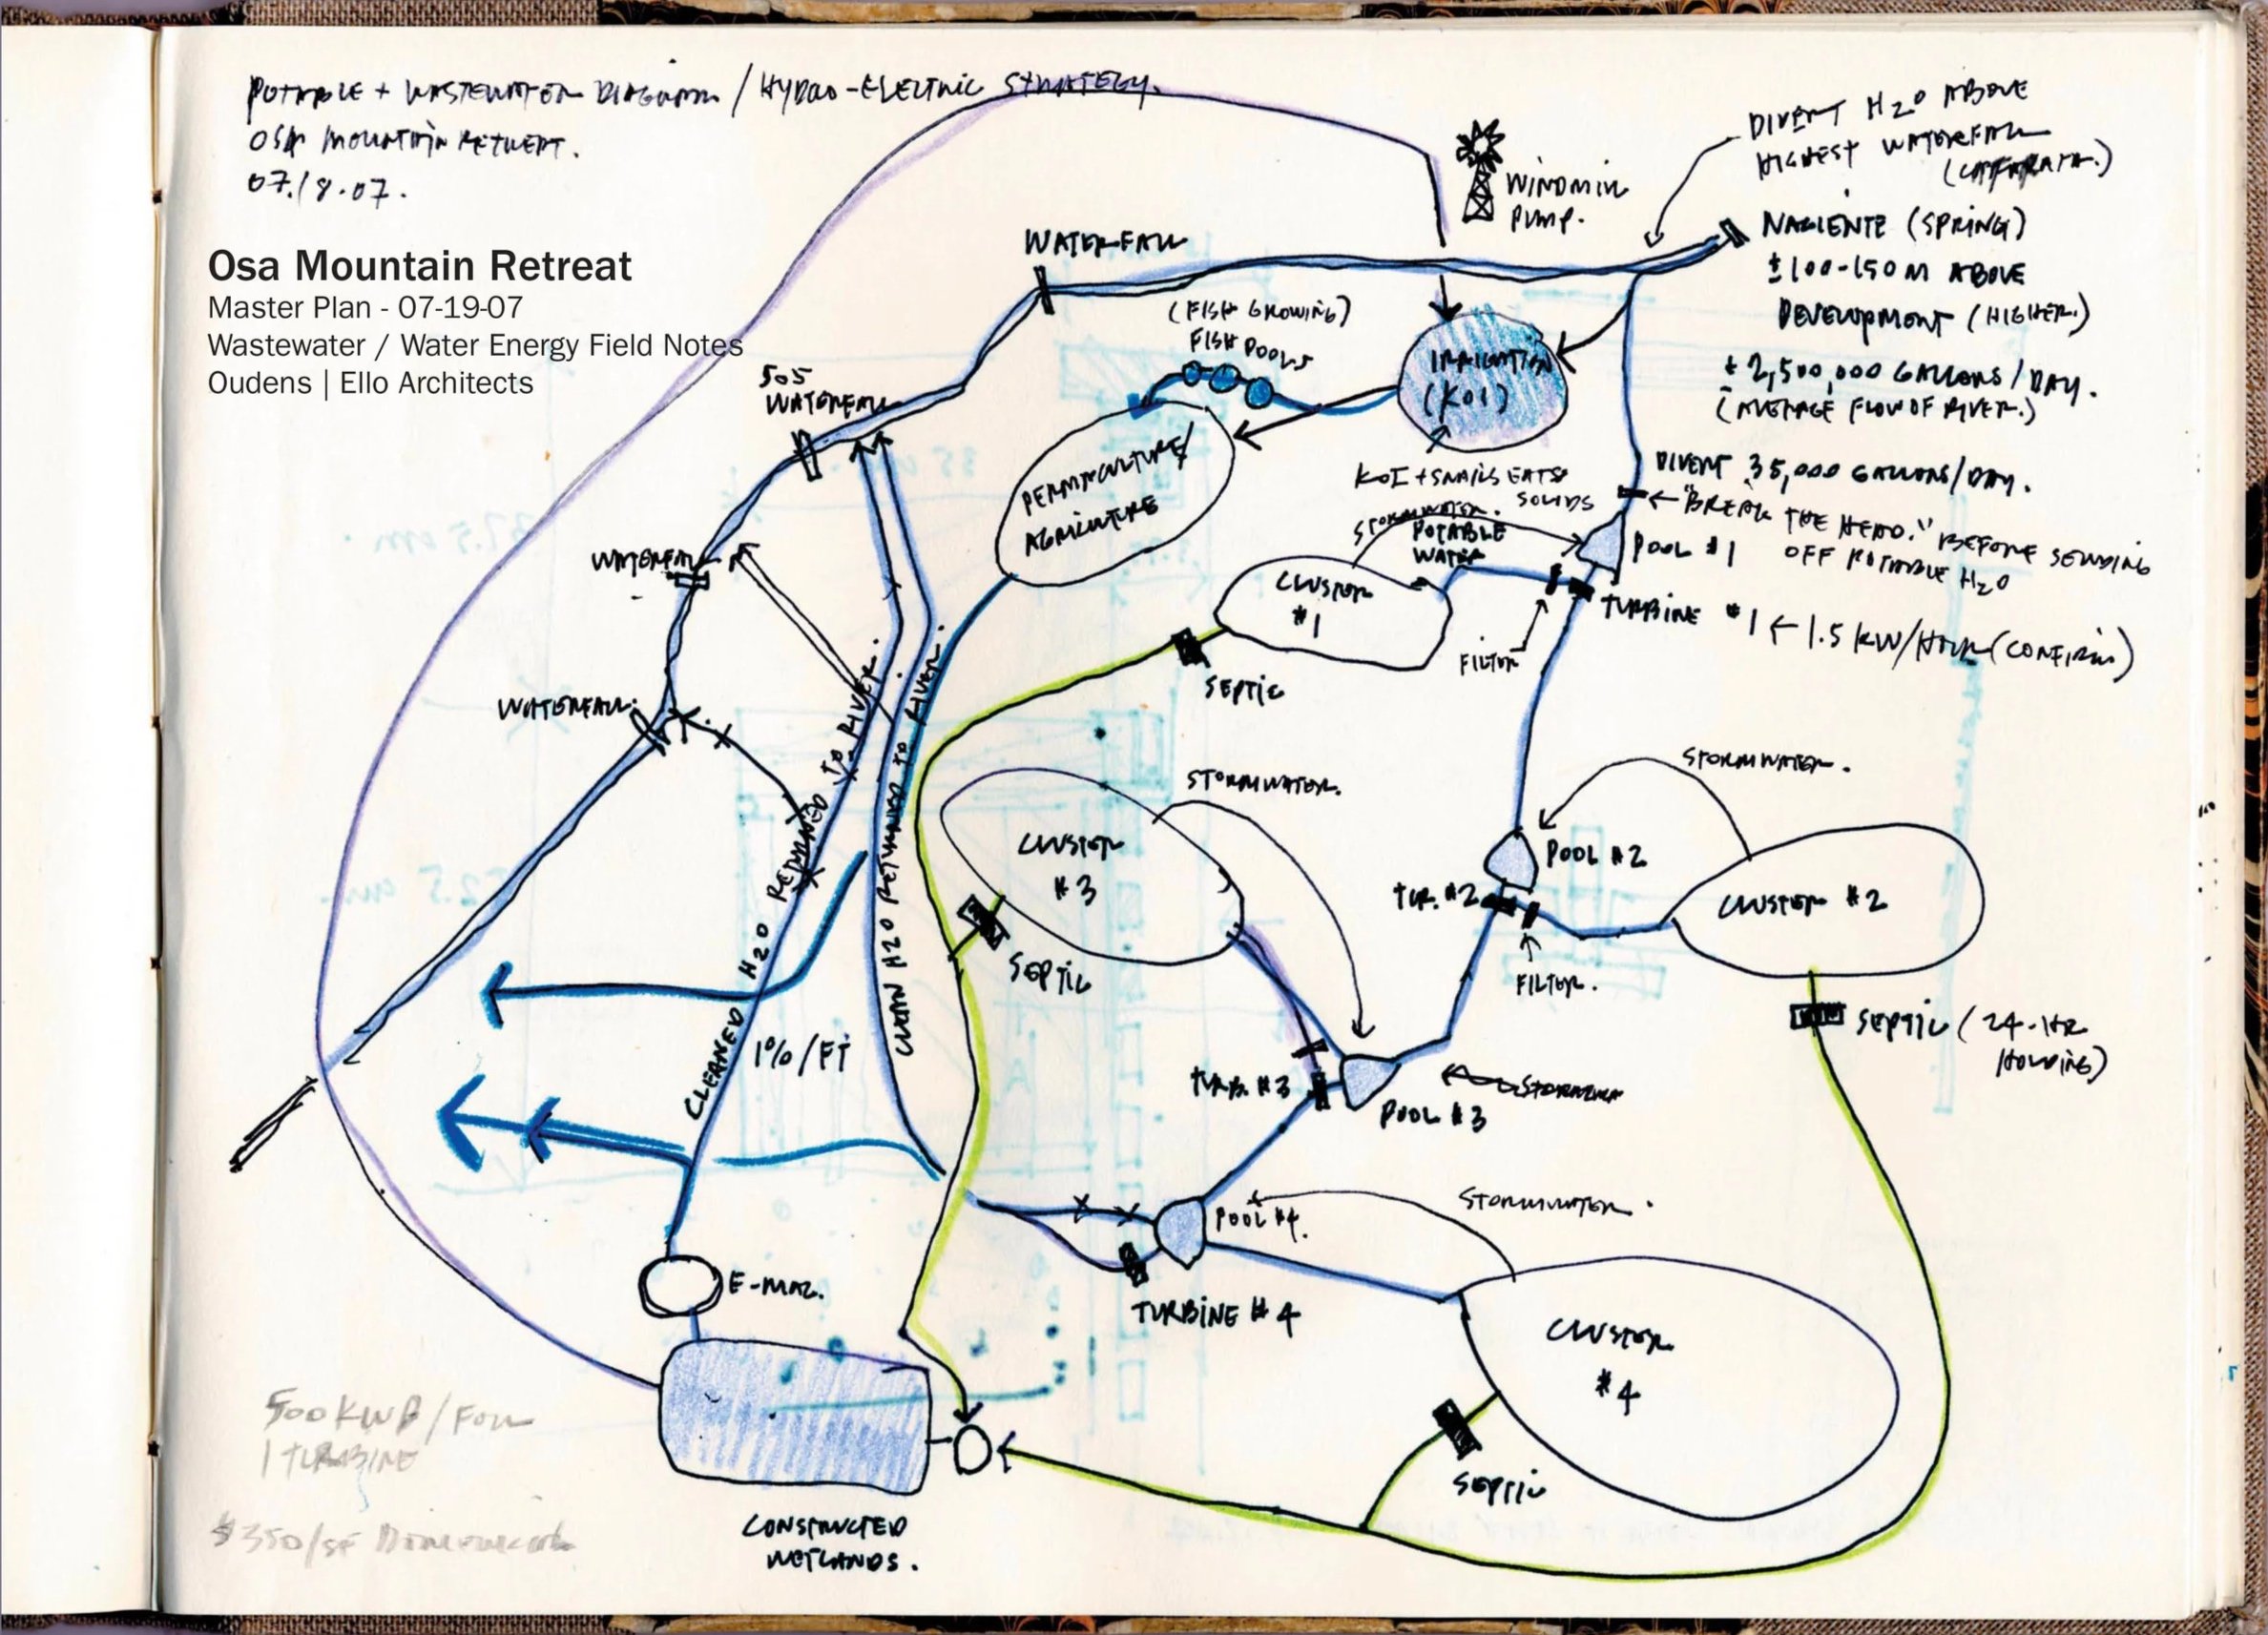 POTABLE + WASTEWATER DIAGRAM / HYDRO-ELECTRIC STRATEGY.
OSA MOUNTAIN RETREAT.
07.18.07.
Osa Mountain Retreat
Master Plan - 07-19-07
Wastewater / Water Energy Field Notes
Oudens | Ello Architects
WINDMILL
PUMP.
DIVERT H2O ABOVE
HIGHEST WATERFALL
NACIENTE (SPRING)
±100-150 M ABOVE
DEVELOPMENT (HIGHER.)
± 2,500,000 GALLONS/DAY.
(AVERAGE FLOW OF RIVER.)
WATERFALL
(FISH GROWING)
FISH POOLS
IRRIGATION
(KOI)
505
WATERFALL
PERMACULTURE/
AGRICULTURE
KOI + SNAILS EATS
SOLIDS
STORMWATER.
POTABLE
WATER
DIVERT 35,000 GALLONS/DAY.
← "BREAK THE HEAD." BEFORE SENDING
OFF POTABLE H2O
POOL #1
WATERFALL
CLUSTER
#1
TURBINE #1 ← 1.5 KW/HOUR (CONFIRM)
FILTER
SEPTIC
WATERFALL.
CLEANED H2O RETURNED TO RIVER.
CLEAN H2O RETURNED TO RIVER.
STORMWATER.
STORMWATER.
CLUSTER
#3
POOL #2
TUR. #2
CLUSTER #2
FILTER.
SEPTIC
SEPTIC (24-HR
HOLDING)
1%/FT
TURB. #3
POOL #3
POOL #4.
STORMWATER.
E-MAZ.
TURBINE #4
CLUSTER
#4
SEPTIC
CONSTRUCTED
WETLANDS.
1 TURBINE